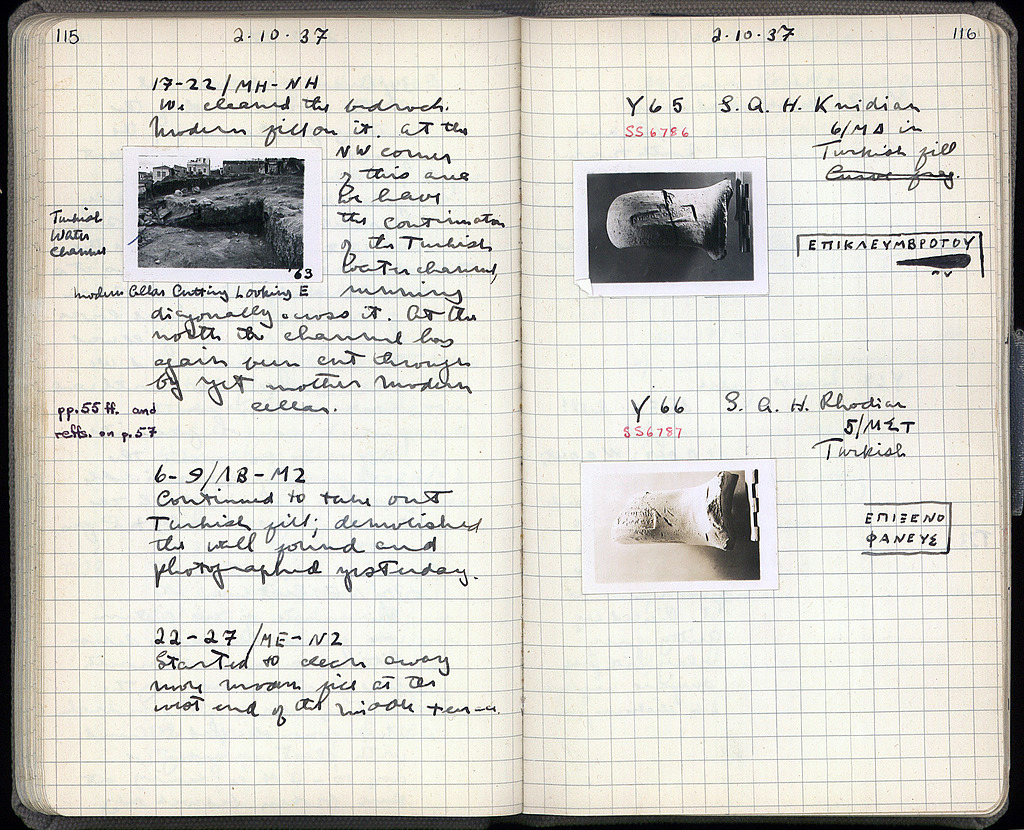 115
2·10·37
17-22/MH-NH
We cleaned the bedrock.
Modern fill on it. At the
NW corner
of this area
we have
the continuation
of the Turkish
water channel,
running
diagonally across it. At the
north the channel has
again been cut through
by yet another modern
cellar.
Turkish
Water
Channel
'63
Modern Cellar Cutting Looking E
pp. 55 ff. and
reffs. on p. 57
6-9/ΛB-M2
Continued to take out
Turkish fill; demolished
the wall found and
photographed yesterday.
22-27/ME-N2
Started to clear away
more modern fill at the
west end of the middle terrace.
2·10·37
116
Y 65 S. A. H. Knidian
SS6786
6/MΔ in
Turkish fill
ΕΠΙΚΛΕΥΜΒΡΟΤΟΥ
Y 66 S. A. H. Rhodian
SS6787
5/MΣT
Turkish
ΕΠΙΞΕΝΟ
ΦΑΝΕΥΣ